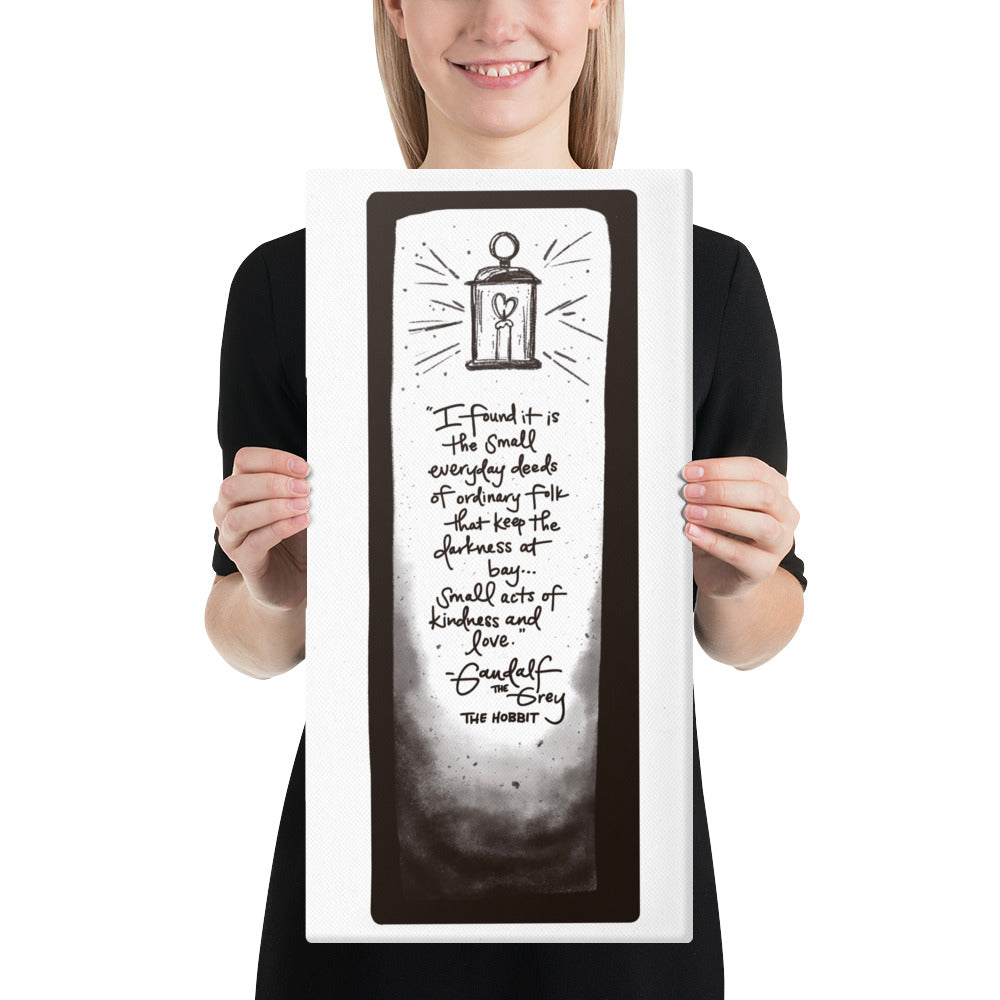 "I found it is
the small
everyday deeds
of ordinary folk
that keep the
darkness at
bay...
small acts of
kindness and
love."
-Gandalf
THE
Grey
THE HOBBIT